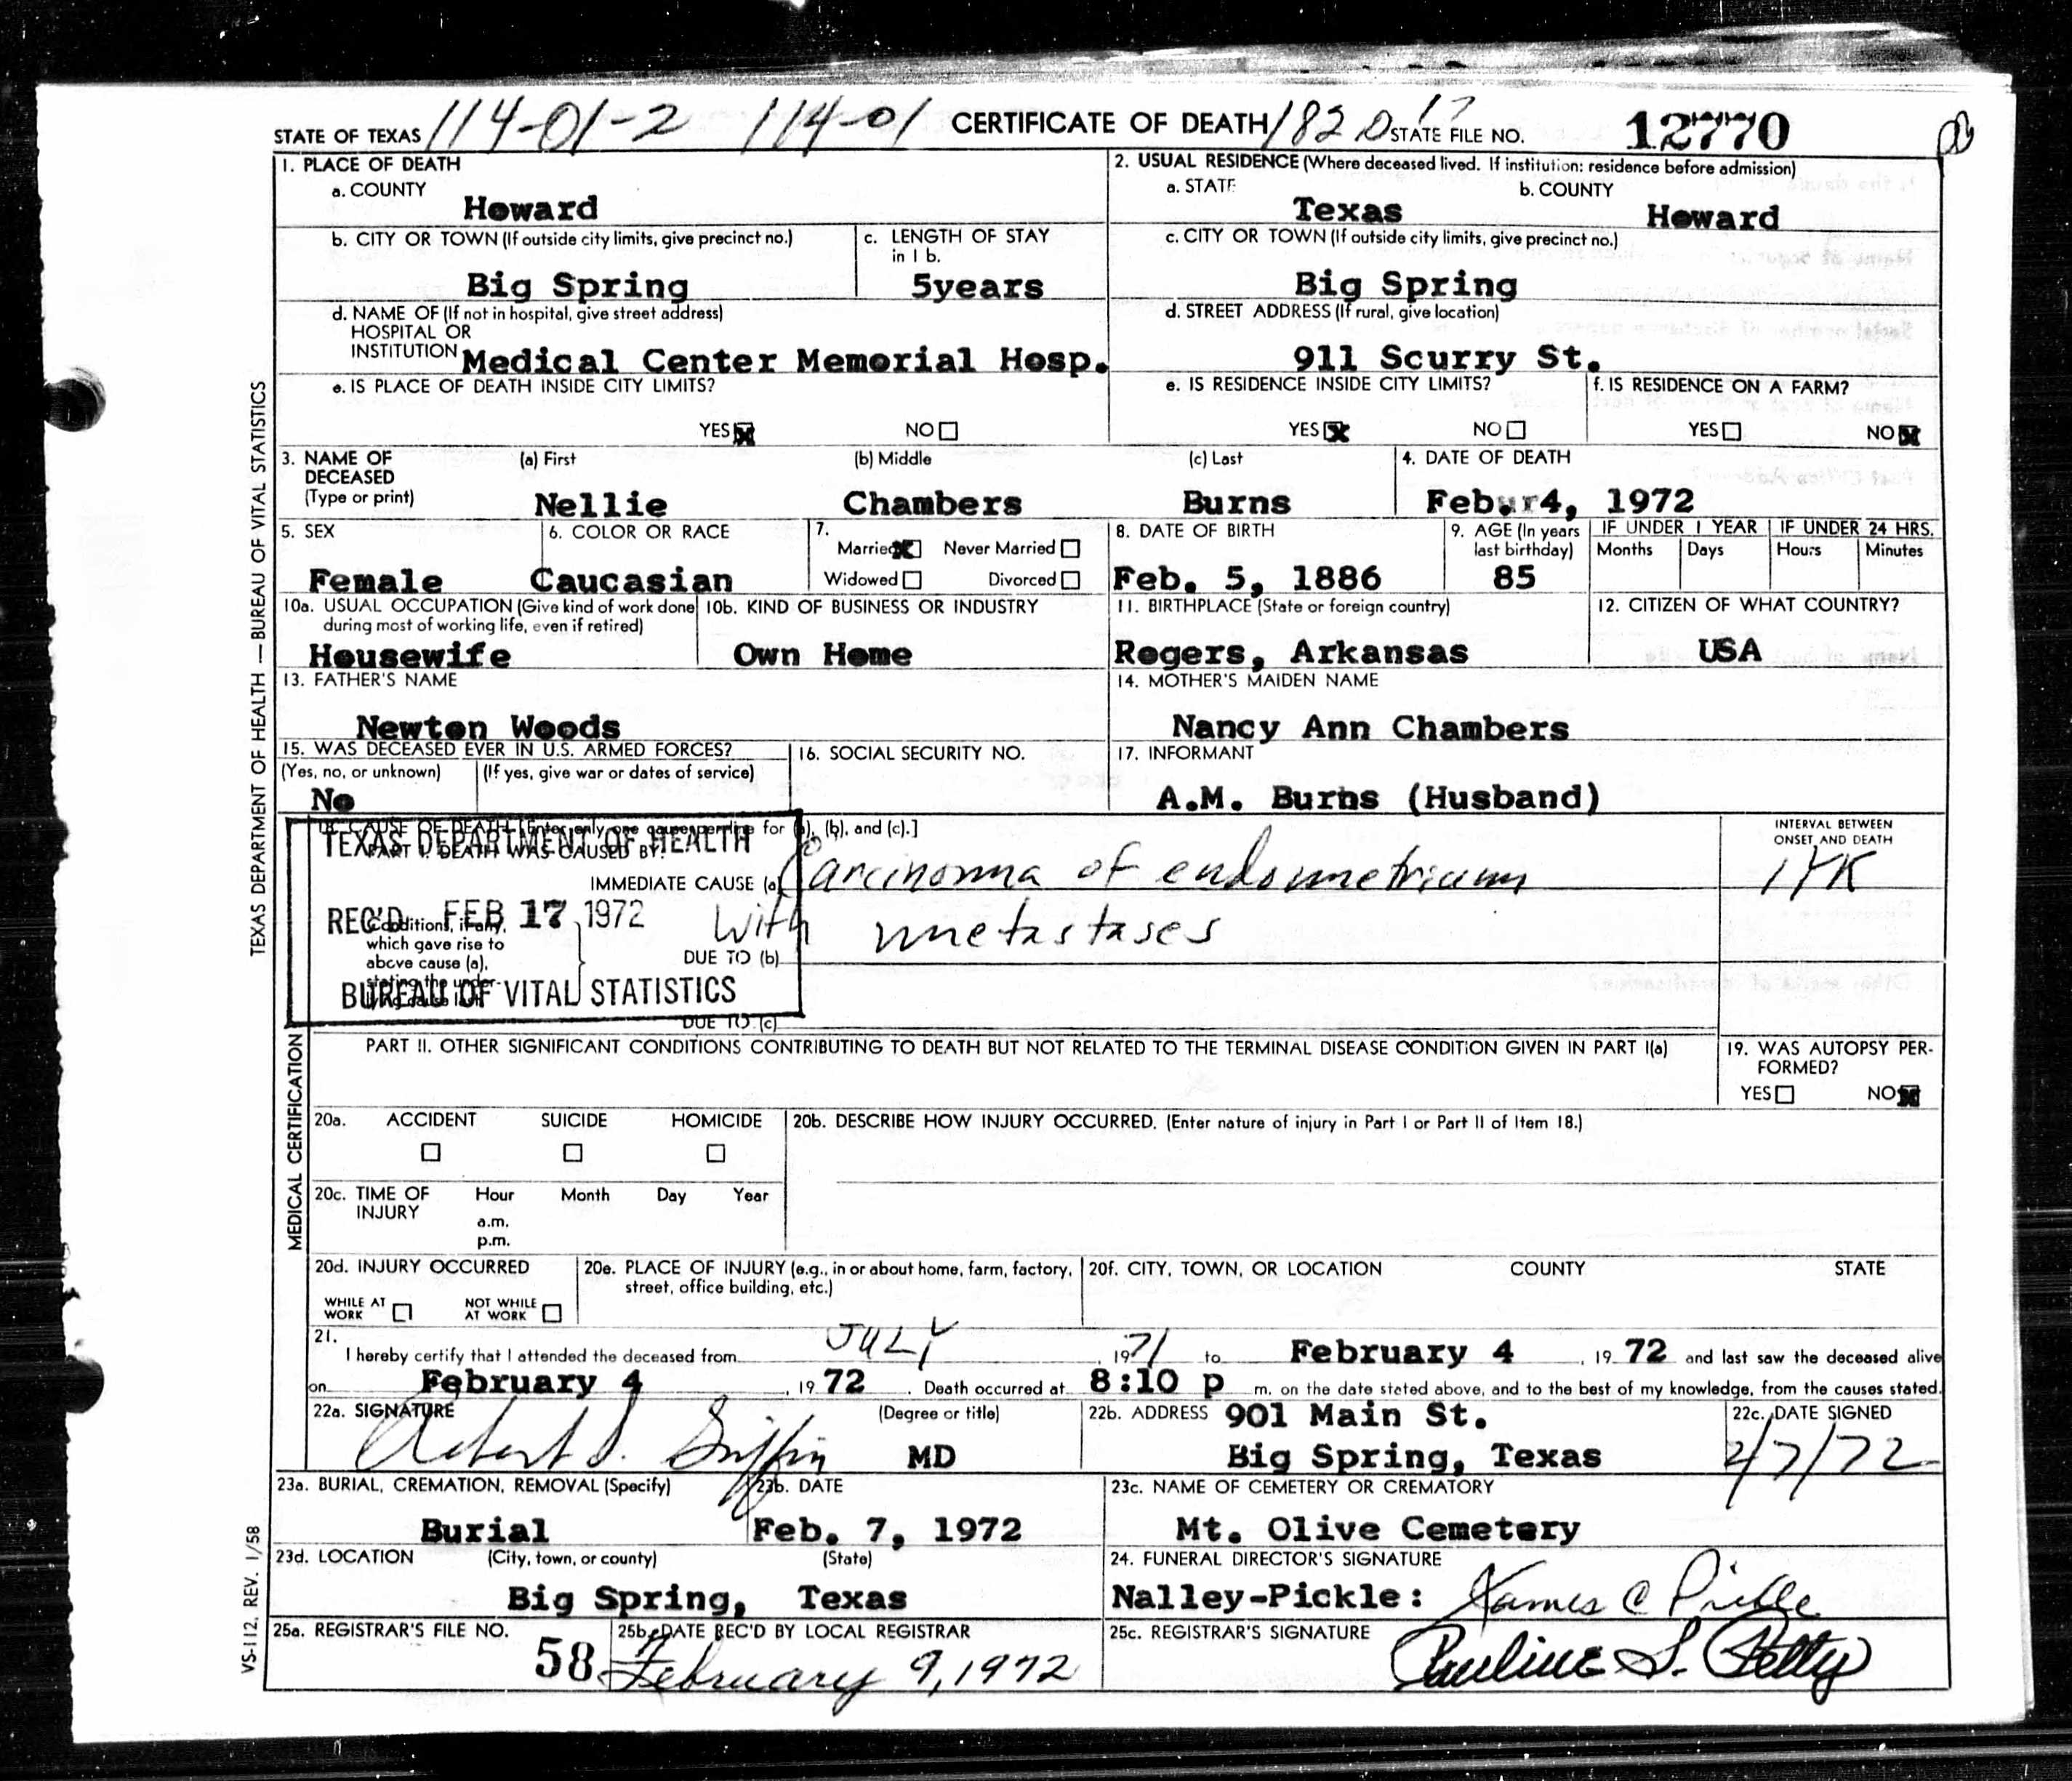 STATE OF TEXAS 114-01-2 114-01 CERTIFICATE OF DEATH 182.0 17 STATE FILE NO. 12770
1. PLACE OF DEATH
a. COUNTY
Howard
b. CITY OR TOWN (If outside city limits, give precinct no.)
Big Spring
c. LENGTH OF STAY in 1 b.
5years
d. NAME OF (If not in hospital, give street address)
HOSPITAL OR
INSTITUTION Medical Center Memorial Hosp.
e. IS PLACE OF DEATH INSIDE CITY LIMITS?
YES NO
2. USUAL RESIDENCE (Where deceased lived. If institution: residence before admission)
a. STATE b. COUNTY
Texas Howard
c. CITY OR TOWN (If outside city limits, give precinct no.)
Big Spring
d. STREET ADDRESS (If rural, give location)
911 Scurry St.
e. IS RESIDENCE INSIDE CITY LIMITS?
YES NO
f. IS RESIDENCE ON A FARM?
YES NO
3. NAME OF DECEASED (Type or print)
(a) First (b) Middle (c) Last
Nellie Chambers Burns
4. DATE OF DEATH
Feb 4, 1972
5. SEX
Female
6. COLOR OR RACE
Caucasian
7.
Married Never Married
Widowed Divorced
8. DATE OF BIRTH
Feb. 5, 1886
9. AGE (In years last birthday)
85
IF UNDER 1 YEAR IF UNDER 24 HRS.
Months Days Hours Minutes
10a. USUAL OCCUPATION (Give kind of work done during most of working life, even if retired)
Housewife
10b. KIND OF BUSINESS OR INDUSTRY
Own Home
11. BIRTHPLACE (State or foreign country)
Rogers, Arkansas
12. CITIZEN OF WHAT COUNTRY?
USA
13. FATHER'S NAME
Newton Woods
14. MOTHER'S MAIDEN NAME
Nancy Ann Chambers
15. WAS DECEASED EVER IN U.S. ARMED FORCES?
(Yes, no, or unknown) (If yes, give war or dates of service)
No
16. SOCIAL SECURITY NO.
17. INFORMANT
A.M. Burns (Husband)
18. CAUSE OF DEATH [Enter only one cause per line for (a), (b), and (c).]
PART I. DEATH WAS CAUSED BY:
IMMEDIATE CAUSE (a) Carcinoma of endometrium
with metastases
Conditions, if any,
which gave rise to
above cause (a),
stating the under-
lying cause last.
DUE TO (b)
DUE TO (c)
INTERVAL BETWEEN
ONSET AND DEATH
1 YR
TEXAS DEPARTMENT OF HEALTH
REC'D FEB 17 1972
BUREAU OF VITAL STATISTICS
PART II. OTHER SIGNIFICANT CONDITIONS CONTRIBUTING TO DEATH BUT NOT RELATED TO THE TERMINAL DISEASE CONDITION GIVEN IN PART I(a)
19. WAS AUTOPSY PER-
FORMED?
YES NO
20a. ACCIDENT SUICIDE HOMICIDE
20b. DESCRIBE HOW INJURY OCCURRED. (Enter nature of injury in Part I or Part II of Item 18.)
20c. TIME OF INJURY Hour Month Day Year
a.m.
p.m.
20d. INJURY OCCURRED
WHILE AT WORK NOT WHILE AT WORK
20e. PLACE OF INJURY (e.g., in or about home, farm, factory, street, office building, etc.)
20f. CITY, TOWN, OR LOCATION COUNTY STATE
21.
I hereby certify that I attended the deceased from JULY, 1971 to February 4, 19 72 and last saw the deceased alive
on February 4, 19 72. Death occurred at 8:10 p m. on the date stated above, and to the best of my knowledge, from the causes stated.
22a. SIGNATURE (Degree or title)
Griffin MD
22b. ADDRESS 901 Main St.
Big Spring, Texas
22c. DATE SIGNED
2/7/72
23a. BURIAL, CREMATION, REMOVAL (Specify)
Burial
23b. DATE
Feb. 7, 1972
23c. NAME OF CEMETERY OR CREMATORY
Mt. Olive Cemetery
23d. LOCATION (City, town, or county) (State)
Big Spring, Texas
24. FUNERAL DIRECTOR'S SIGNATURE
Nalley-Pickle: James C Pickle
25a. REGISTRAR'S FILE NO.
58
25b. DATE REC'D BY LOCAL REGISTRAR
February 9, 1972
25c. REGISTRAR'S SIGNATURE
Pauline S. Petty
TEXAS DEPARTMENT OF HEALTH — BUREAU OF VITAL STATISTICS
MEDICAL CERTIFICATION
VS-112, REV. 1/58